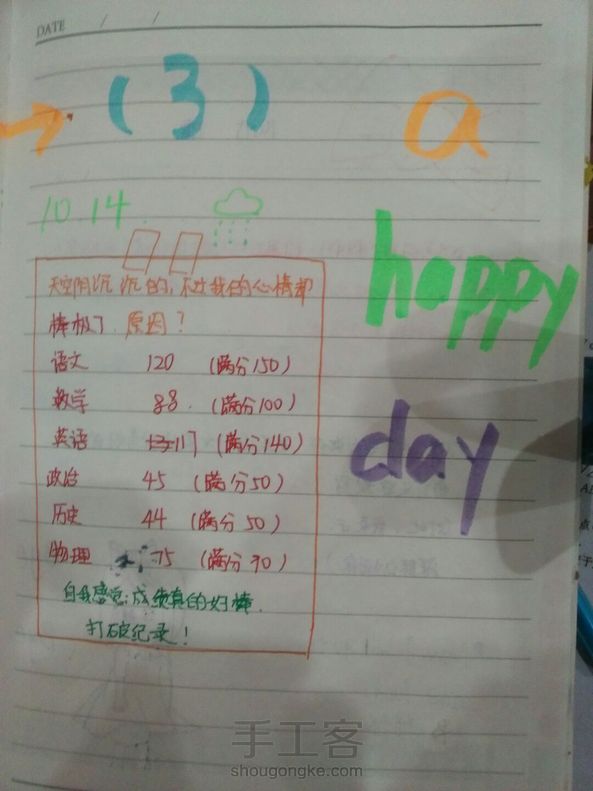 DATE / /
(3)
a
10.14
happy
天空阴沉沉的,不过我的心情却
棒极了.原因?
语文 120 (满分150)
数学 88. (满分100)
英语 117 (满分140)
政治 45 (满分50)
历史 44 (满分50)
物理 75 (满分90)
day
自我感觉:成绩真的好棒.
打破纪录!
手工客
shougongke.com